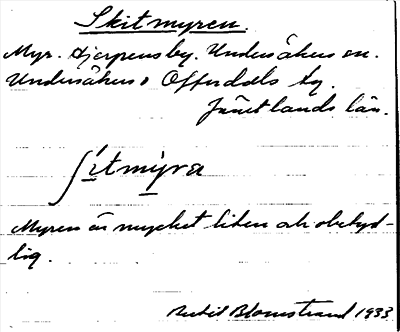 Skitmyren.
Myr. Hjerpens by. Undersåkers sn.
Undersåkers o Offerdals tg.
Jämtlands län.
ʃítmỳra
Myren är mycket liten och obetyd-
lig.
Bertil Blomstrand 1933